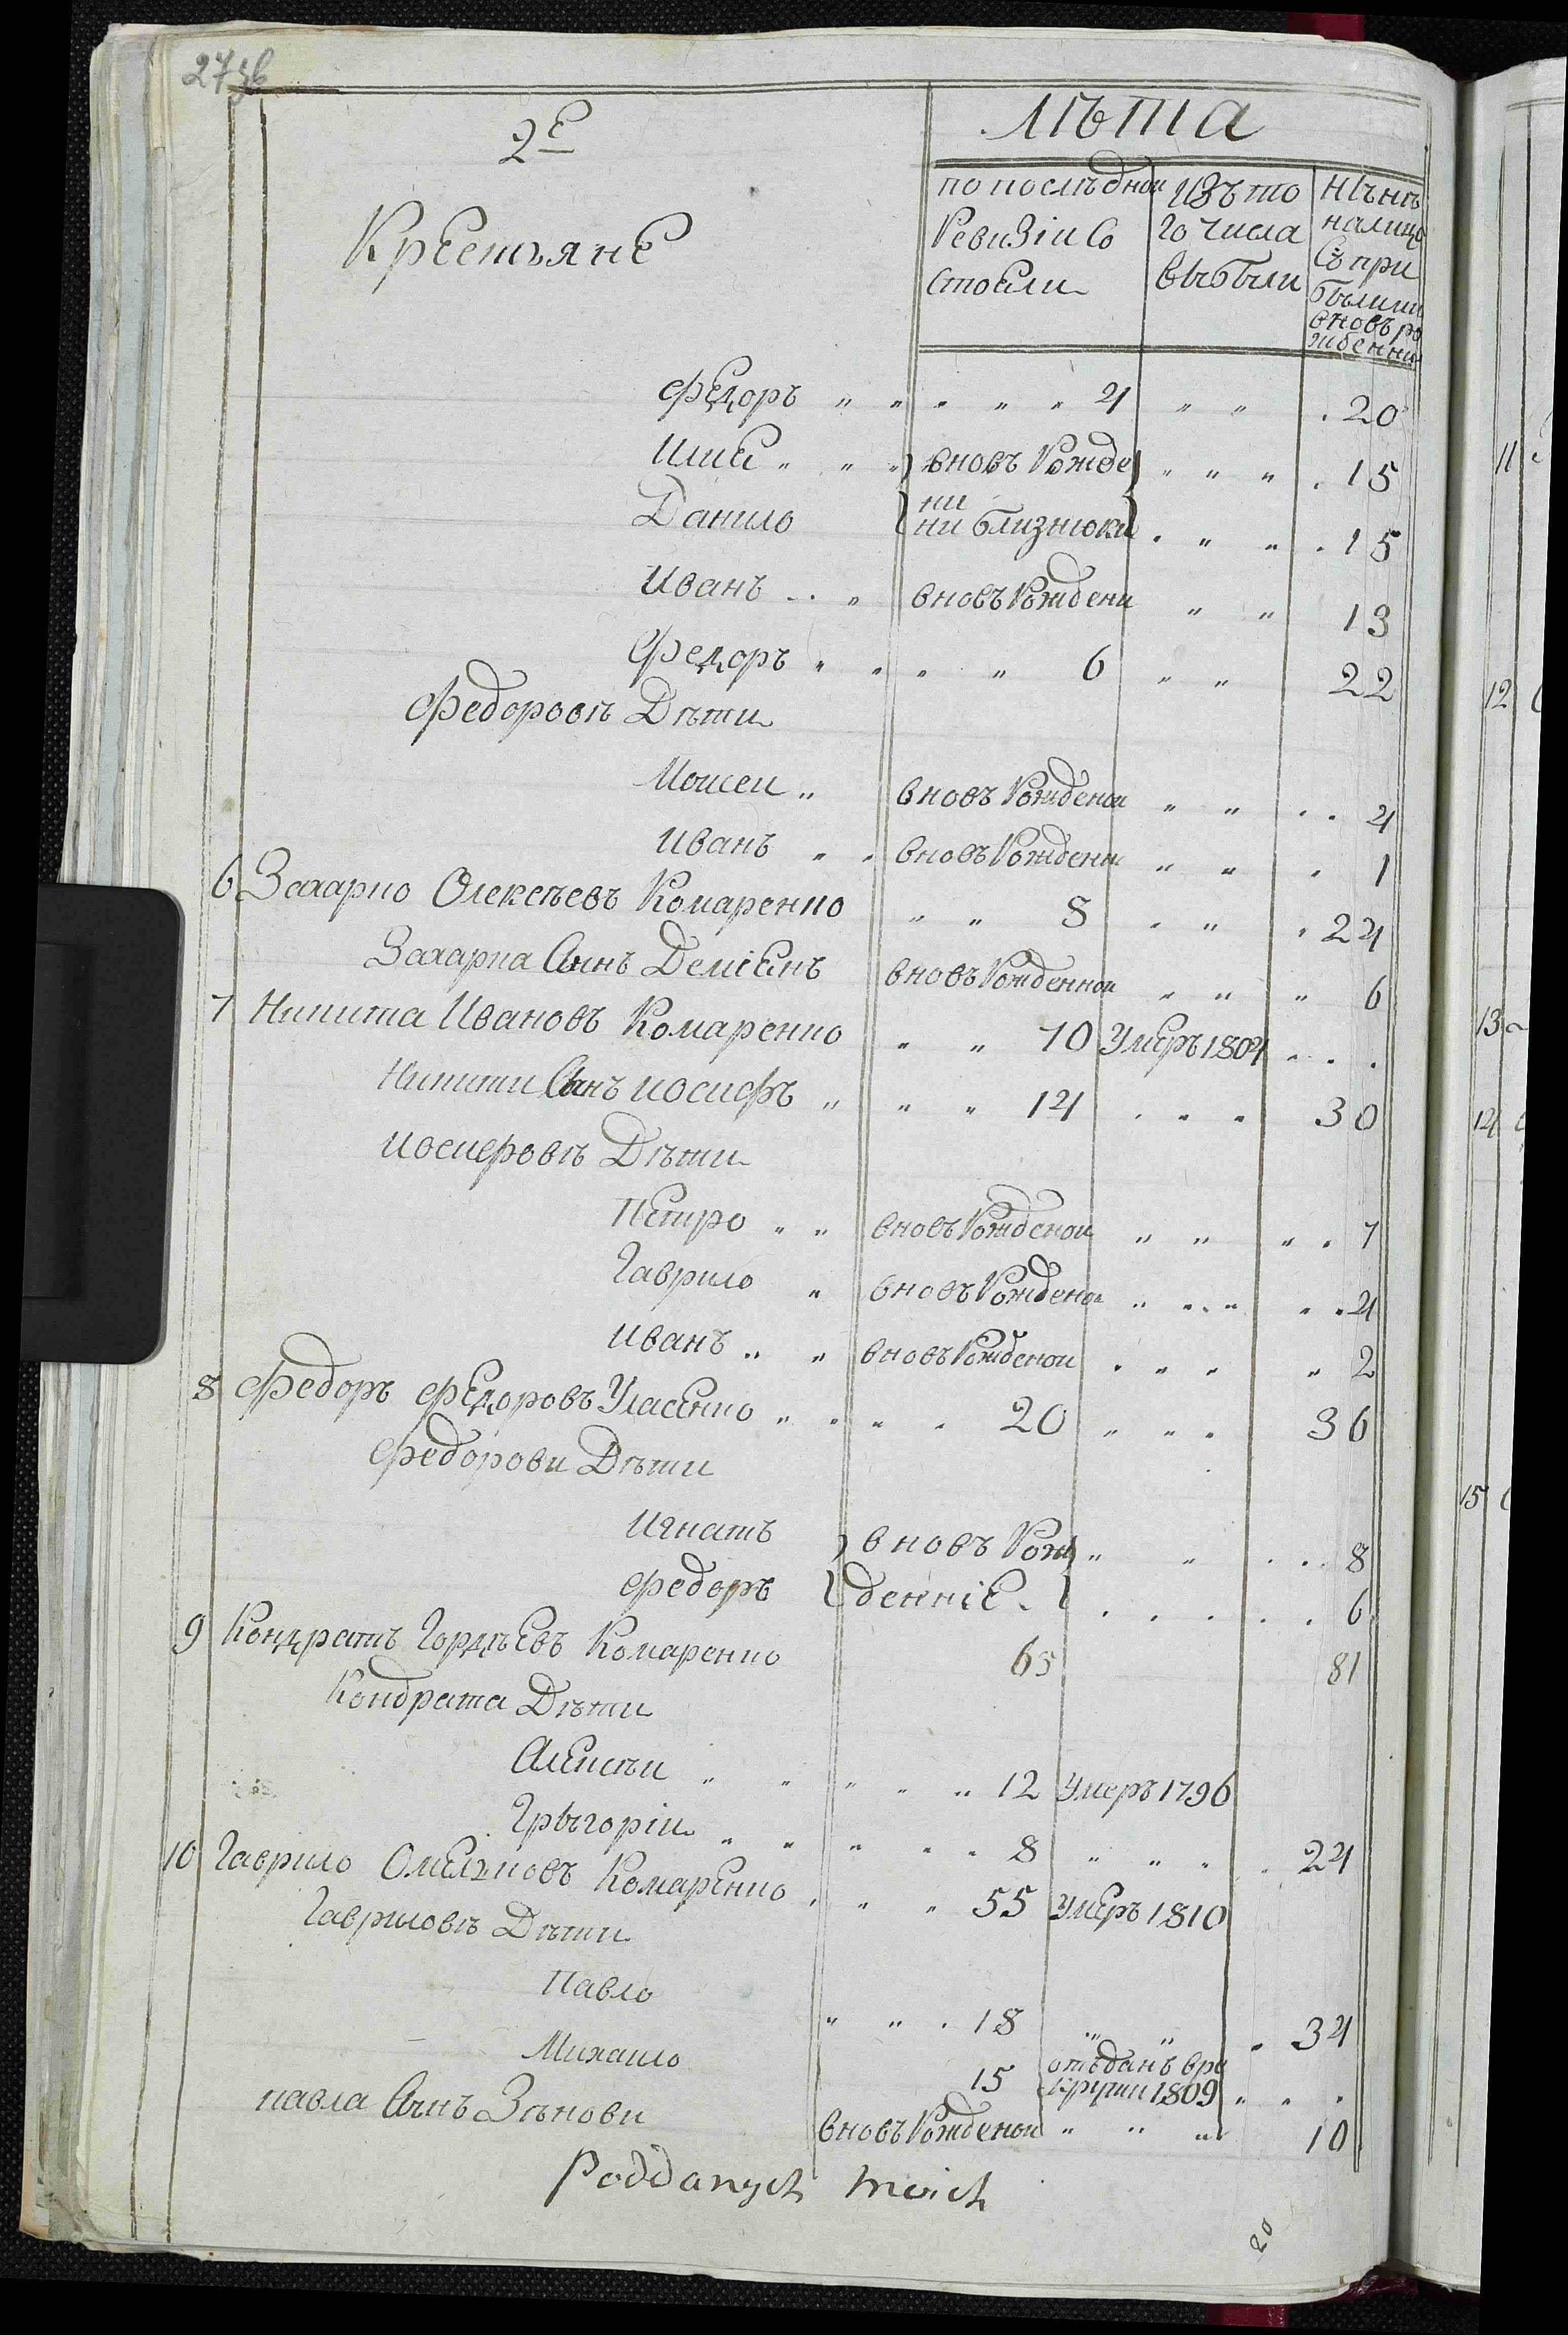 273б
2е
Крестьяне
лѣта
по послѣднои Ревизіи Состояли
изъ того числа выбыли
нынѣ налицо съ прибылими вновь рожденни
Федоръ 4 20
Илия } вновь Рожде 15
Данило } ни близнюки 15
Иванъ вновь Рождени 13
Федоръ 6 22
Федоровѣ Дѣти
Моисеи вновь Рожденои 4
Иванъ вновь Рождени 1
6 Захарко Олексѣевъ Комаренко 8 24
Захарка Сынъ Деміянъ вновь Рожденнои 6
7 Никита Ивановъ Комаренко 70 Умеръ 1804
Никити Сынъ иосифъ 14 30
иосифовѣ Дѣти
Петро вновь Рожденои 7
Гаврило вновь Рожденои 4
Иванъ вновь Рожденои 2
8 Федоръ Федоровъ Уласенко 20 36
Федорови Дѣти
Игнатъ } вновь Рож 8
Федоръ } денніе 6
9 Кондратъ Гордѣевъ Комаренко 65 81
Кондрата Дѣти
Алексѣи 12 Умеръ 1796
Грыгоріи 8 24
10 Гаврило Омеляновъ Комаренко 55 Умеръ 1810
Гавриловѣ Дѣти
Павло 18 34
Михаило 15 отъданъ врекрути 1809
павла Сынъ Зѣнови вновь Рожденои 10
Poddanych moich